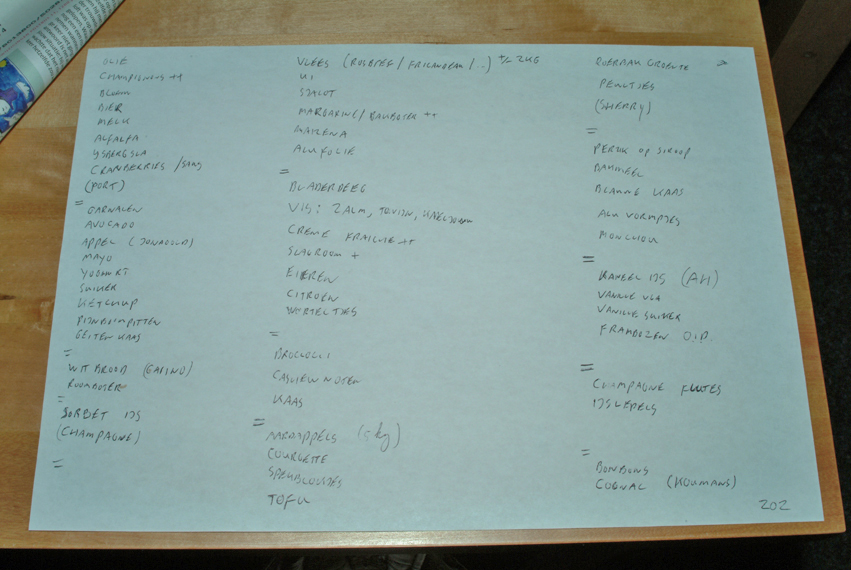 OLIE
CHAMPIGNONS ++
BLOEM
BIER
MELK
ALFALFA
YSBERGSLA
CRANBERRIES / SAUS
(PORT)
=
GARNALEN
AVOCADO
APPEL (JONAGOLD)
MAYO
YOGHURT
SUIKER
KETCHUP
PIJNBOOMPITTEN
GEITEN KAAS
=
WIT BROOD (CASINO)
ROOMBOTER
=
SORBET IJS
(CHAMPAGNE)
=
VLEES (ROSBIEF / FRICANDEAU / ..) +/- 2KG
UI
SJALOT
MARGARINE / BAKBOTER ++
MAIZENA
ALUFOLIE
=
BLADERDEEG
VIS: ZALM, TONIJN, KABELJAUW
CREME FRAICHE ++
SLAGROOM +
EIEREN
CITROEN
WORTELTJES
=
BROCCOLI
CASHEW NOTEN
KAAS
=
AARDAPPELS (5kg)
COURGETTE
SPEKBLOKJES
TOFU
GROENTE
PEULTJES
(SHERRY)
=
PERZIK OP SIROOP
BLAUWE KAAS
ALU VORMPJES
MONCHOU
=
KANEEL IJS (AH)
VANILLE VLA
VANILLE SUIKER
FRAMBOZEN O.I.D.
=
CHAMPAGNE FLUTES
IJSLEPELS
=
BONBONS
COGNAC (KOOMANS)
202